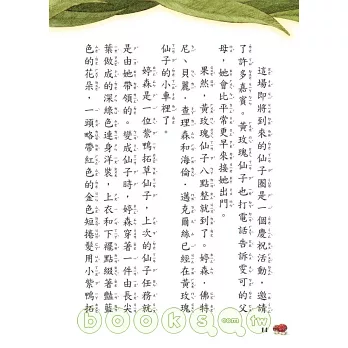 這場即將到來的仙子圈是一個慶祝活動，邀請
了許多嘉賓。黃玫瑰仙子也打電話告訴雯可的父
母，她會比平常更早來接她出門。
果然，黃玫瑰仙子八點整就到了。婷森、佛特
尼、貝麗、查理森和海倫．邁克爾絲已經在黃玫瑰
仙子的小車裡了。
婷森是一位紫鴨拓草仙子，上次的仙子任務就
是由她帶領的。變成仙子時，婷森穿著一件由長尖
葉做成的深綠色連身洋裝，上衣和下襬點綴著豔藍
色的花朵，一頭略帶紅色的金色短捲髮用小紫鴨拓
14
books.com.tw